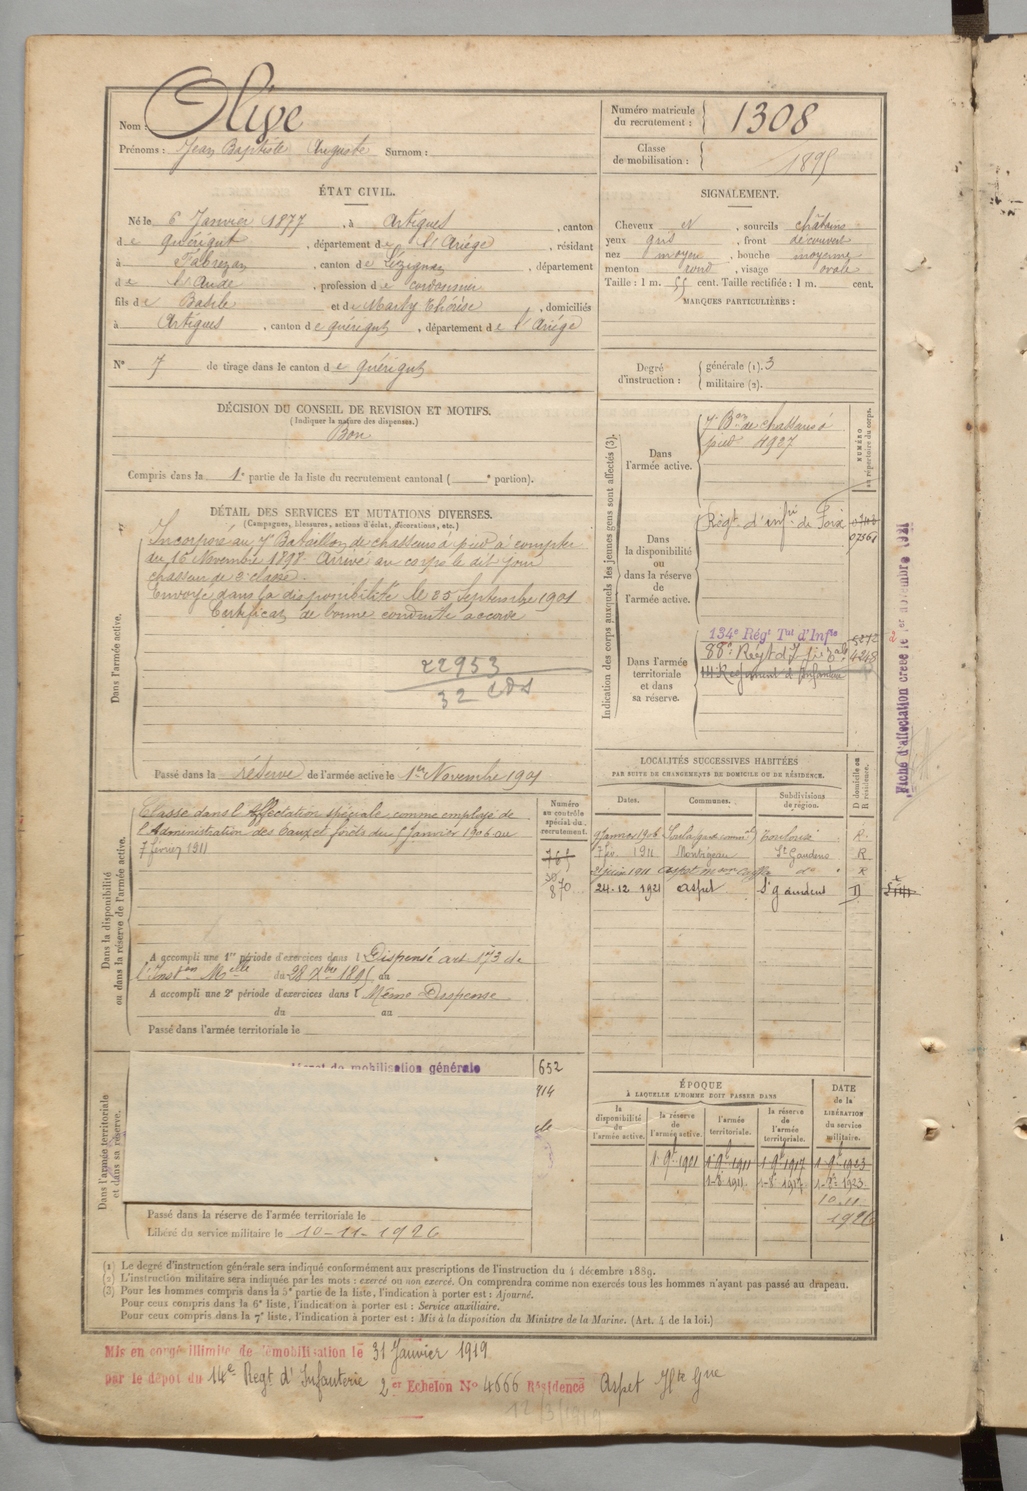 Nom : Olive
Prénoms : Jean Baptiste Auguste Surnom :
Numéro matricule
du recrutement : 1308
Classe
de mobilisation : 1895
ÉTAT CIVIL.
Né le 6 Janvier 1877, à Artigues, canton
de Quérigut, département de l'Ariège, résidant
à Fabrezan, canton de Lézignan, département
de l'Aude, profession de cordonnier
fils de Basile et de Marty Thérèse, domiciliés
à Artigues, canton de Quérigut, département de l'Ariège
N° 7 de tirage dans le canton de Quérigut
SIGNALEMENT.
Cheveux et, sourcils châtains
yeux gris, front découvert
nez moyen, bouche moyenne
menton rond, visage ovale
Taille : 1 m. 55 cent. Taille rectifiée : 1 m. cent.
MARQUES PARTICULIÈRES :
Degré
d'instruction :
générale (1). 3
militaire (2).
DÉCISION DU CONSEIL DE REVISION ET MOTIFS.
(Indiquer la nature des dispenses.)
Bon
Compris dans la 1e partie de la liste du recrutement cantonal ( e portion).
DÉTAIL DES SERVICES ET MUTATIONS DIVERSES.
(Campagnes, blessures, actions d'éclat, décorations, etc.)
Dans l'armée active.
Incorporé au 7e Bataillon de chasseurs à pied à compter
du 16 Novembre 1898. Arrivé au corps le dit jour
chasseur de 2e classe.
Envoyé dans la disponibilité le 25 Septembre 1901
Certificat de bonne conduite accordé
22953
32 CDS
Passé dans la réserve de l'armée active le 1er Novembre 1901
Indication des corps auxquels les jeunes gens sont affectés (3).
NUMÉRO
au répertoire du corps.
Dans
l'armée active.
7e Bon de chasseurs à
pied 4927
Dans
la disponibilité
ou
dans la réserve
de
l'armée active.
Régt. d'infrie de Foix
07561
Dans l'armée
territoriale
et dans
sa réserve.
134e Régt Tal d'Infie
5272
4248
14 Régiment d'Infanterie
Fiche d'affectation créée le 1er novembre 1921
LOCALITÉS SUCCESSIVES HABITÉES
PAR SUITE DE CHANGEMENTS DE DOMICILE OU DE RÉSIDENCE.
Dates. Communes. Subdivisions
de région.
D domicile ou
R résidence.
9 Janvier 1906 Toulouse R
7 fév. 1911 Montréjeau St Gaudens R
21 juin 1911 Aspet do R
24-12-1921 Aspet St gaudens D
Dans la disponibilité
ou dans la réserve de l'armée active.
Classé dans l'Affectation spéciale comme employé de
l'Administration des Eaux et forêts du 9 Janvier 1906 au
7 février 1911
Numéro
au contrôle
spécial du
recrutement.
765
870
A accompli une 1re période d'exercices dans l Dispensé art 173 de
l'Inston Melle du 28 Xbre 1895 au
A accompli une 2e période d'exercices dans l Même Dispense
du au
Passé dans l'armée territoriale le
Dans l'armée territoriale
et dans sa réserve.
de mobilisation générale
652
914
Passé dans la réserve de l'armée territoriale le
Libéré du service militaire le 10-11-1926
ÉPOQUE
À LAQUELLE L'HOMME DOIT PASSER DANS
la
disponibilité
de
l'armée active.
la réserve
de
l'armée active.
l'armée
territoriale.
la réserve
de
l'armée
territoriale.
DATE
de la
LIBÉRATION
du service
militaire.
1-9bre 1901 1-9bre 1911 1-9bre 1917 1-9bre 1923
1-8e 1911 1-8e 1917 1-8e 1923
10-11
1926
(1) Le degré d'instruction générale sera indiqué conformément aux prescriptions de l'instruction du 4 décembre 1889.
(2) L'instruction militaire sera indiquée par les mots : exercé ou non exercé. On comprendra comme non exercés tous les hommes n'ayant pas passé au drapeau.
(3) Pour les hommes compris dans la 5e partie de la liste, l'indication à porter est : Ajourné.
Pour ceux compris dans la 6e liste, l'indication à porter est : Service auxiliaire.
Pour ceux compris dans la 7e liste, l'indication à porter est : Mis à la disposition du Ministre de la Marine. (Art. 4 de la loi.)
Mis en congé illimité de démobilisation le 31 Janvier 1919
par le dépôt du 14e Regt d'Infanterie 2er Echelon N° 4666 Résidence Aspet Hte Gne
12/3/1919